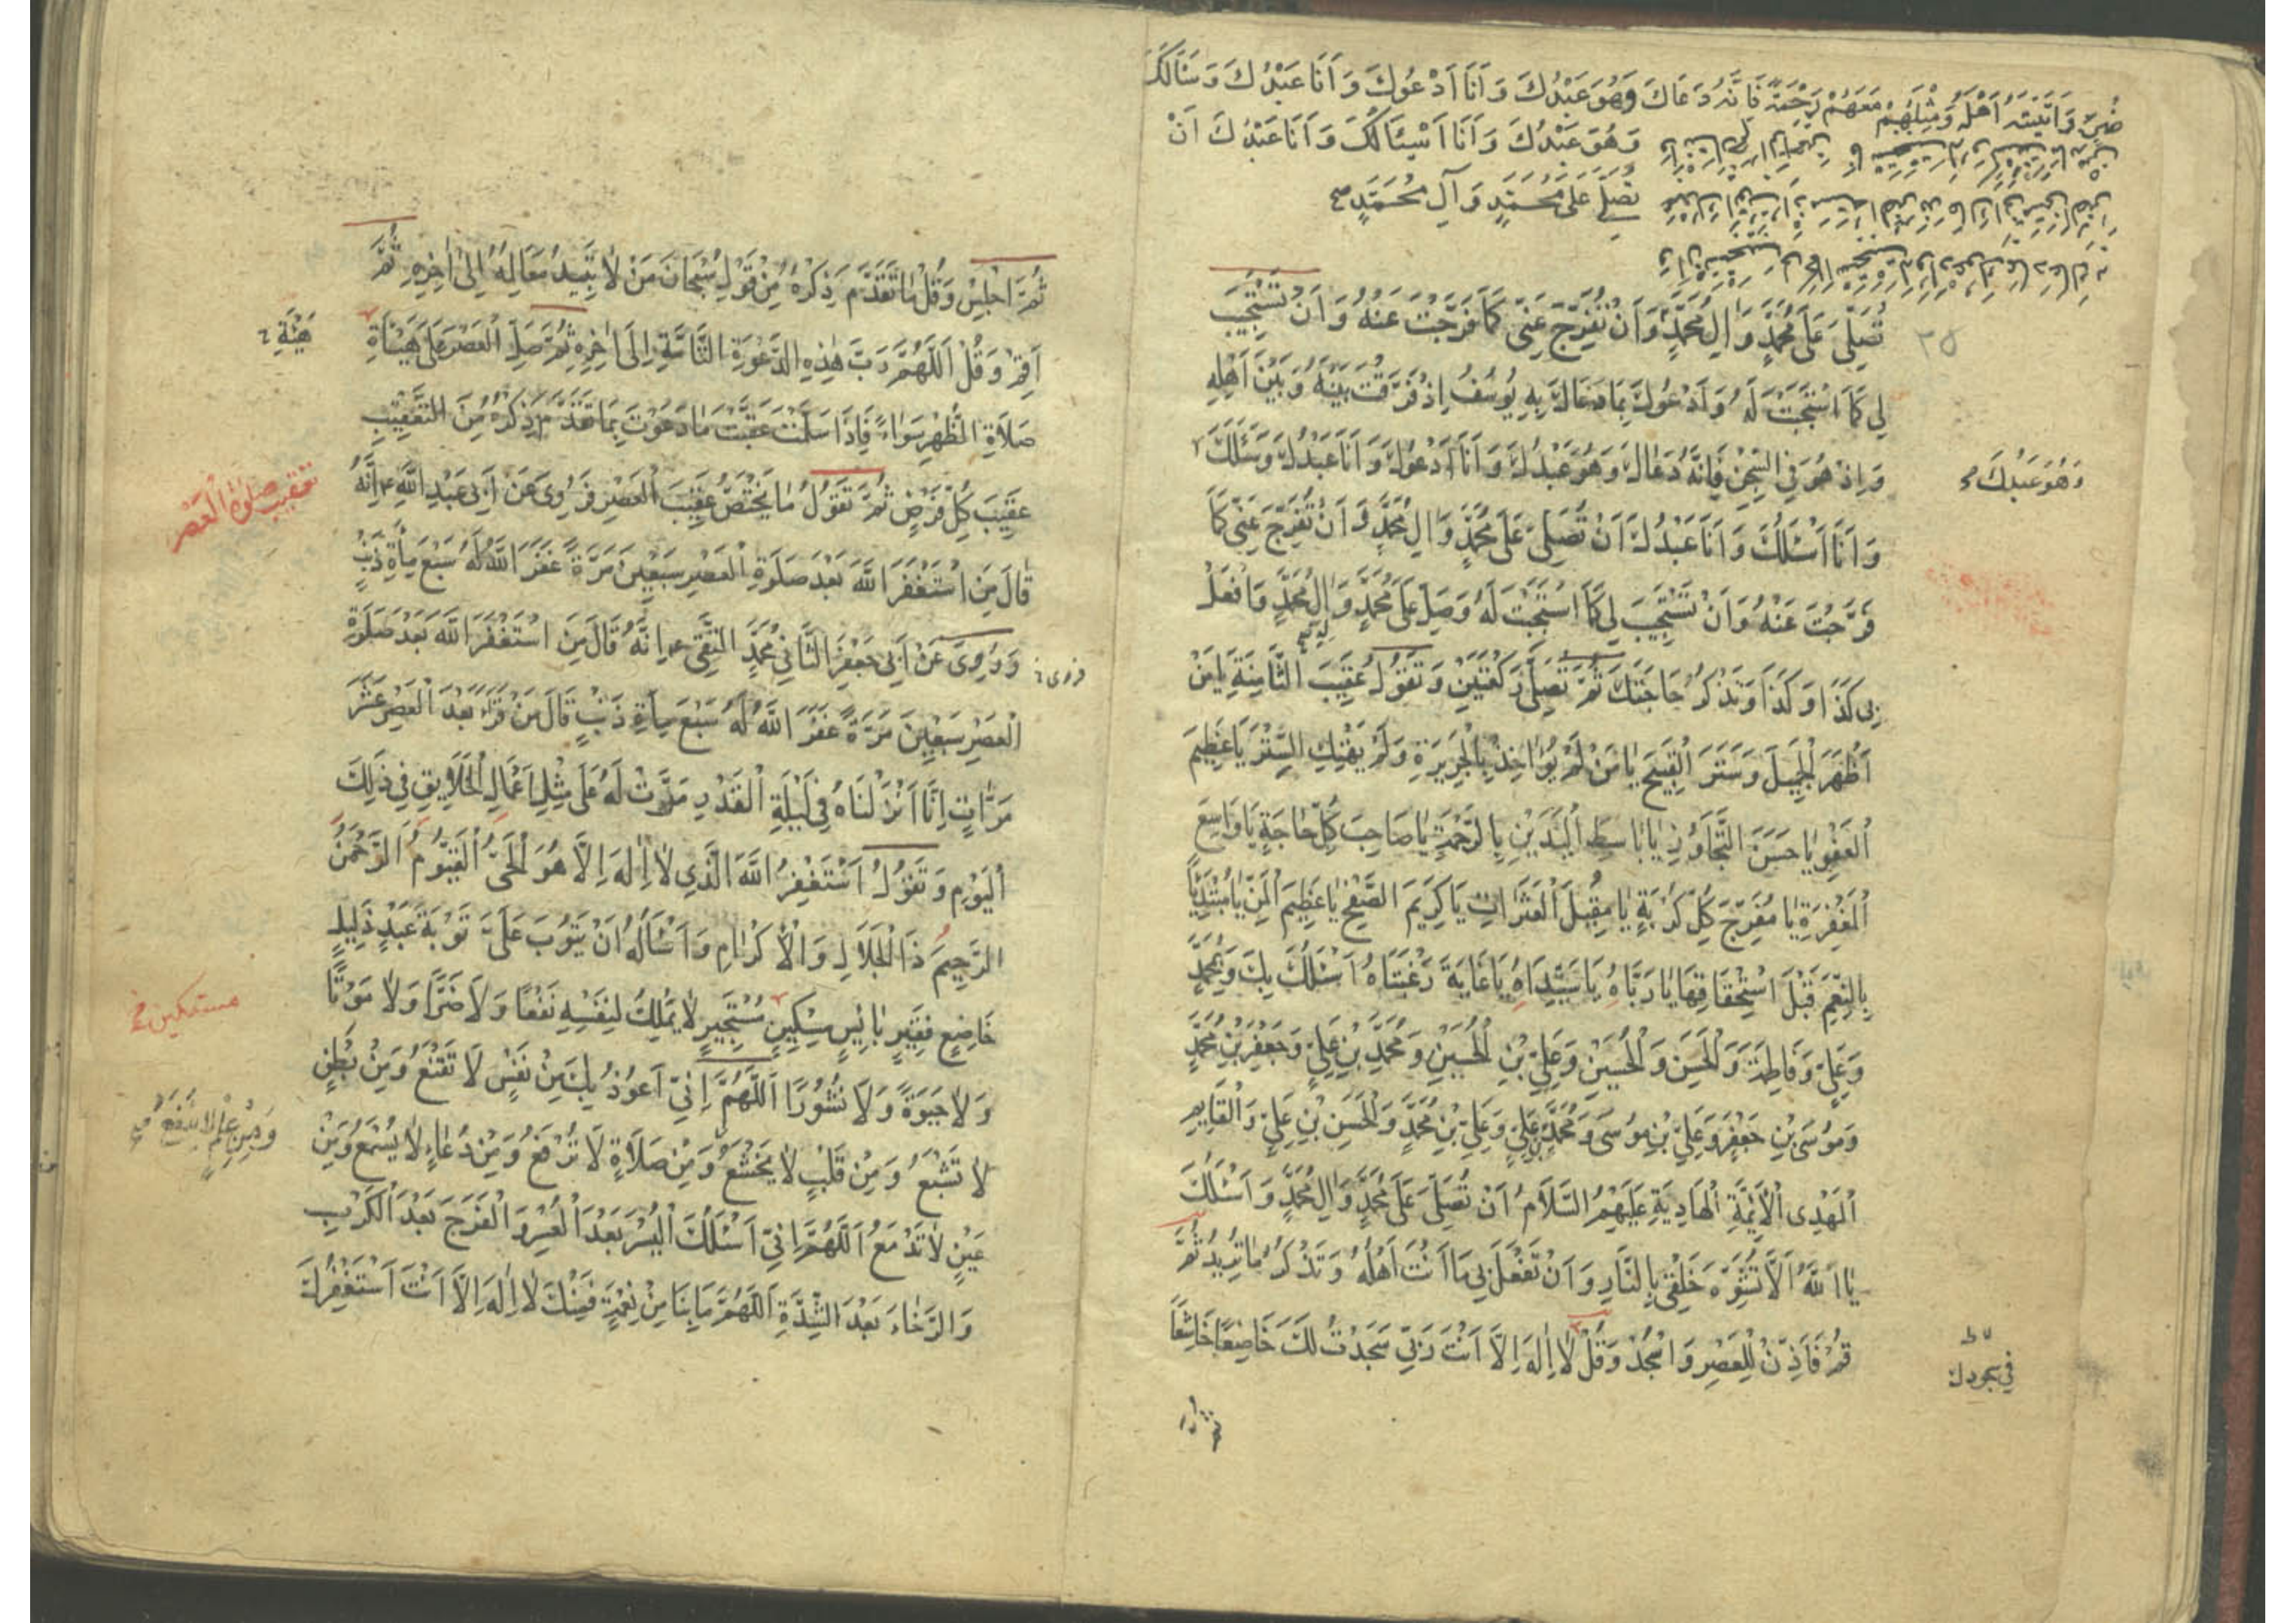 ضُرٍّ وَآتَيْتَهُ أَهْلَهُ وَمِثْلَهُمْ مَعَهُمْ رَحْمَةً فَإِنَّهُ دَعَاكَ وَهُوَ عَبْدُكَ وَأَنَا أَدْعُوكَ وَأَنَا عَبْدُكَ وَسَأَلَكَ
وَهُوَ عَبْدُكَ وَأَنَا أَسْئَالُكَ وَأَنَا عَبْدُكَ أَنْ
تُصَلِّيَ عَلَى مُحَمَّدٍ وَآلِ مُحَمَّدٍ صح
تُصَلِّيَ عَلَى مُحَمَّدٍ وَالِ مُحَمَّدٍ وَأَنْ تُفَرِّجَ عَنِّي كَمَا فَرَّجْتَ عَنْهُ وَأَنْ تَسْتَجِيبَ
٣٥
لِي كَمَا اسْتَجَبْتَ لَهُ وَأَدْعُوكَ بِمَا دَعَاكَ بِهِ يُوسُفُ إِذْ فَرَّقْتَ بَيْنَهُ وَبَيْنَ أَهْلِهِ
وَإِذْ هُوَ فِي السِّجْنِ فَإِنَّهُ دَعَاكَ وَهُوَ عَبْدُكَ وَأَنَا أَدْعُوكَ وَأَنَا عَبْدُكَ وَسَئَلَكَ
وَهُوَ عَبْدُكَ
وَأَنَا أَسْئَلُكَ وَأَنَا عَبْدُكَ أَنْ تُصَلِّيَ عَلَى مُحَمَّدٍ وَالِ مُحَمَّدٍ وَأَنْ تُفَرِّجَ عَنِّي كَمَا
فَرَّجْتَ عَنْهُ وَأَنْ تَسْتَجِيبَ لِي كَمَا اسْتَجَبْتَ لَهُ وَصَلِّ عَلَى مُحَمَّدٍ وَالِ مُحَمَّدٍ وَافْعَلْ
بِي كَذَا وَكَذَا وَتَذْكُرُ حَاجَتَكَ ثُمَّ تُصَلِّي رَكْعَتَيْنِ وَتَقُولُ عَقِيبَ الثَّامِنَةِ يَا مَنْ
أَظْهَرَ الْجَمِيلَ وَسَتَرَ الْقَبِيحَ يَا مَنْ لَمْ يُوَاخِذْ بِالْجَرِيرَةِ وَلَمْ يَهْتِكِ السِّتْرَ يَا عَظِيمَ
الْعَفْوِ يَا حَسَنَ التَّجَاوُزِ يَا بَاسِطَ الْيَدَيْنِ بِالرَّحْمَةِ يَا صَاحِبَ كُلِّ حَاجَةٍ يَا وَاسِعَ
الْمَغْفِرَةِ يَا مُفَرِّجَ كُلِّ كُرْبَةٍ يَا مُقِيلَ الْعَثَرَاتِ يَا كَرِيمَ الصَّفْحِ يَا عَظِيمَ الْمَنِّ يَا مُبْتَدِئاً
بِالنِّعَمِ قَبْلَ اسْتِحْقَاقِهَا يَا رَبَّاهُ يَا سَيِّدَاهُ يَا غَايَةَ رَغْبَتَاهُ أَسْئَلُكَ بِكَ وَبِمُحَمَّدٍ
وَعَلِيٍّ وَفَاطِمَةَ وَالْحَسَنِ وَالْحُسَيْنِ وَعَلِيِّ بْنِ الْحُسَيْنِ وَمُحَمَّدِ بْنِ عَلِيٍّ وَجَعْفَرِ بْنِ مُحَمَّدٍ
وَمُوسَى بْنِ جَعْفَرٍ وَعَلِيِّ بْنِ مُوسَى وَمُحَمَّدِ بْنِ عَلِيٍّ وَعَلِيِّ بْنِ مُحَمَّدٍ وَالْحَسَنِ بْنِ عَلِيٍّ وَالْقَايِمِ
الْمَهْدِى الْأَئِمَّةِ الْهَادِيَةِ عَلَيْهِمُ السَّلَامُ أَنْ تُصَلِّيَ عَلَى مُحَمَّدٍ وَالِ مُحَمَّدٍ وَأَسْئَلُكَ
يَا اَللَّهُ أَلَّا تُشَوِّهَ خَلْقِي بِالنَّارِ وَأَنْ تَفْعَلَ بِي مَا أَنْتَ أَهْلُهُ وَتَذْكُرُ مَا تُرِيدُ ثُمَّ
قُمْ فَأَذِّنْ لِلْعَصْرِ وَاسْجُدْ وَقُلْ لَا إِلَهَ إِلَّا أَنْتَ رَبِّي سَجَدْتُ لَكَ خَاضِعًا خَاشِعًا
فى سجودك
ثُمَّ اجْلِسْ وَقُلْ مَا تَقَدَّمَ ذِكْرُهُ مِنْ قَوْلِ سُبْحَانَ مَنْ لَا تَبِيدُ مَعَالِمُهُ إِلَى اخِرِهِ ثُمَّ
أَقِمْ وَقُلْ اَللَّهُمَّ رَبَّ هَذِهِ الدَّعْوَةِ التَّامَّةِ إِلَى اخِرِهِ ثُمَّ صَلِّ الْعَصْرَ عَلَى هَيْئَاةِ
هَيْئَةِ
صَلَاةِ الظُّهْرِ سَوَاءً فَإِذَا سَلَّمْتَ عَقَّبْتَ مَا دَعَوْتَ بِمَا تَقَدَّمَ ذِكْرُهُ مِنَ التَّعْقِيبِ
عَقِيبَ كُلِّ فَرْضٍ ثُمَّ تَقُولُ مَا يَخْتَصُّ عَقِيبَ الْعَصْرِ فَرُوِىَ عَنْ أَبِى عَبْدِ اللَّهِ ع أَنَّهُ
تعقيب صلوة العصر
قَالَ مَنِ اسْتَغْفَرَ اللَّهَ بَعْدَ صَلَوةِ الْعَصْرِ سَبْعِينَ مَرَّةً غَفَرَ اللَّهُ لَهُ سَبْعَ مِأَةِ ذَنْبٍ
وَرُوِىَ عَنْ أَبِي جَعْفَرٍ الثَّانِي مُحَمَّدٍ التَّقِى ع أَنَّهُ قَالَ مَنِ اسْتَغْفَرَ اللَّهَ بَعْدَ صَلَوةِ
فروى
الْعَصْرِ سَبْعِينَ مَرَّةً غَفَرَ اللَّهُ لَهُ سَبْعَ مِأَةِ ذَنْبٍ قَالَ مَنْ قَرَأَ بَعْدَ الْعَصْرِ عَشْرَ
مَرَّاتٍ إِنَّا أَنْزَلْنَاهُ فِي لَيْلَةِ الْقَدْرِ مَرَّتْ لَهُ عَلَى مِثْلِ أَعْمَالِ الْخَلَايِقِ فِي ذَلِكَ
الْيَوْمِ وَتَقُولُ أَسْتَغْفِرُ اللَّهَ الَّذِى لَا إِلَهَ إِلَّا هُوَ الْحَيُّ الْقَيُّومُ الرَّحْمَنُ
الرَّحِيمُ ذَا الْجَلَالِ وَالْإِكْرَامِ وَأَسْأَلُهُ أَنْ يَتُوبَ عَلَيَّ تَوْبَةَ عَبْدٍ ذَلِيلٍ
خَاضِعٍ فَقِيرٍ بَائِسٍ مِسْكِينٍ مُسْتَجِيرٍ لَا يَمْلِكُ لِنَفْسِهِ نَفْعًا وَلَا ضَرًّا وَلَا مَوْتًا
مستكين خ
وَلَا حَيَوةً وَلَا نُشُورًا اَللَّهُمَّ إِنِّي أَعُوذُ بِكَ مِنْ نَفْسٍ لَا تَقْنَعُ وَمِنْ بَطْنٍ
لَا تَشْبَعُ وَمِنْ قَلْبٍ لَا يَخْشَعُ وَمِنْ صَلَاةٍ لَا تُرْفَعُ وَمِنْ دُعَاءٍ لَا يُسْمَعُ وَمِنْ
وَمِنْ عِلْمٍ لَا يَنْفَعُ
عَيْنٍ لَا تَدْمَعُ اَللَّهُمَّ إِنِّي أَسْئَلُكَ الْيُسْرَ بَعْدَ الْعُسْرِ وَالْفَرَجَ بَعْدَ الْكَرْبِ
وَالرَّخَاءَ بَعْدَ الشِّدَّةِ اَللَّهُمَّ مَا بِنَا مِنْ نِعْمَةٍ فَمِنْكَ لَا إِلَهَ إِلَّا أَنْتَ أَسْتَغْفِرُكَ